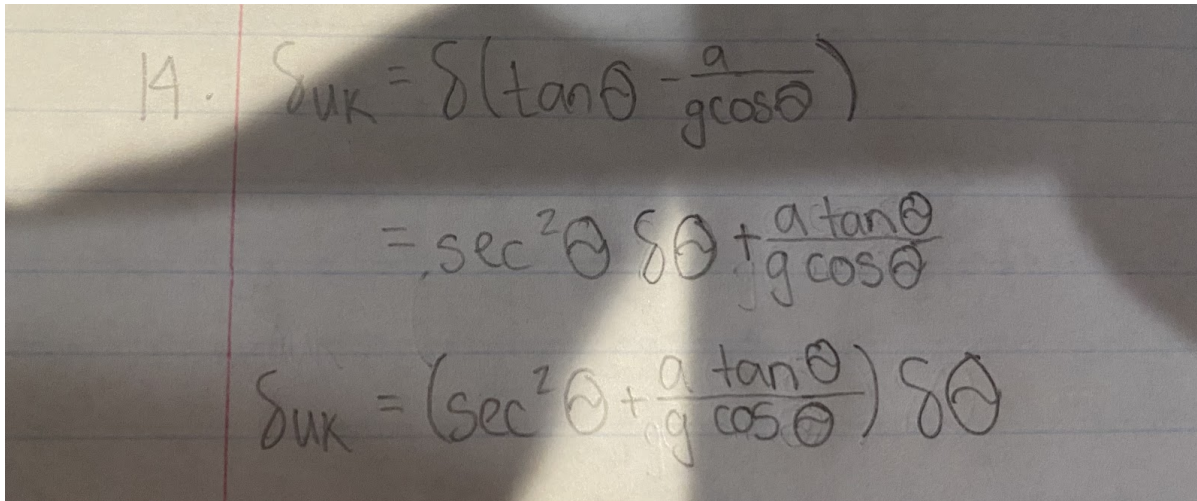 14. δuk = δ(tanθ - a/(gcosθ))
= sec²θ δθ + (a tanθ)/(g cosθ)
δuk = (sec²θ + (a/g) (tanθ/cosθ)) δθ